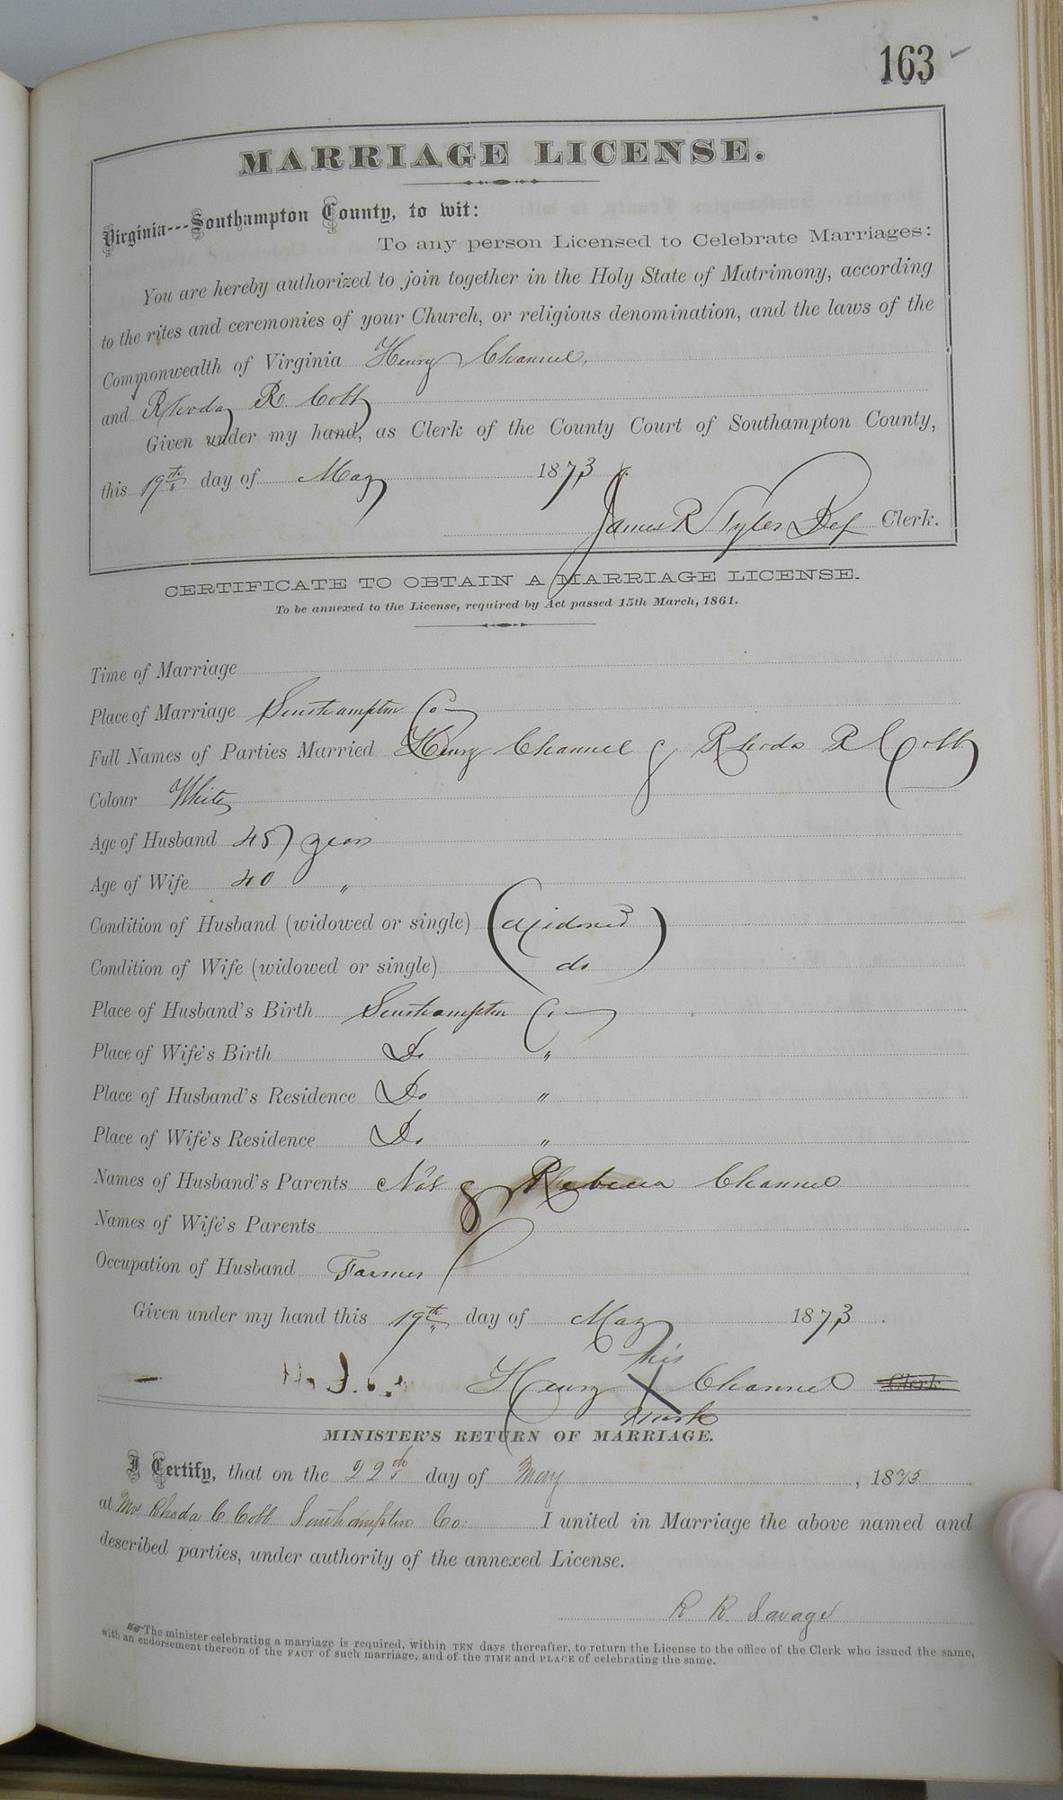 163
MARRIAGE LICENSE.
Virginia---Southampton County, to wit:
To any person Licensed to Celebrate Marriages:
You are hereby authorized to join together in the Holy State of Matrimony, according
to the rites and ceremonies of your Church, or religious denomination, and the laws of the
Commonwealth of Virginia Henry Channel,
and Rhoda R. Cobb
Given under my hand, as Clerk of the County Court of Southampton County,
this 19th day of May 1873
James R Tyler Dep Clerk.
CERTIFICATE TO OBTAIN A MARRIAGE LICENSE.
To be annexed to the License, required by Act passed 15th March, 1861.
Time of Marriage
Place of Marriage Southampton Co
Full Names of Parties Married Henry Channel & Rhoda R Cobb
Colour White
Age of Husband 45 years
Age of Wife 40 "
Condition of Husband (widowed or single) Widowed
Condition of Wife (widowed or single) do
Place of Husband's Birth Southampton Co
Place of Wife's Birth Do "
Place of Husband's Residence Do "
Place of Wife's Residence Do "
Names of Husband's Parents & Rebecca Channel
Names of Wife's Parents
Occupation of Husband Farmer
Given under my hand this 19th day of May 1873.
his
Henry X Channel Clerk
mark
MINISTER'S RETURN OF MARRIAGE.
I Certify, that on the 22d day of May, 1873
at Mrs Rhoda C Cobb Southampton Co: I united in Marriage the above named and
described parties, under authority of the annexed License.
R. R. Savage
The minister celebrating a marriage is required, within TEN days thereafter, to return the License to the office of the Clerk who issued the same,
with an endorsement thereon of the FACT of such marriage, and of the TIME and PLACE of celebrating the same.